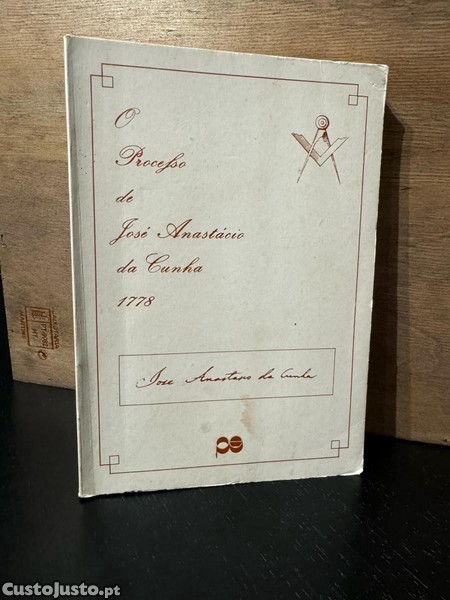 O
Processo
de
José Anastácio
da Cunha
1778
Jose Anastasio da Cunha
CustoJusto.pt